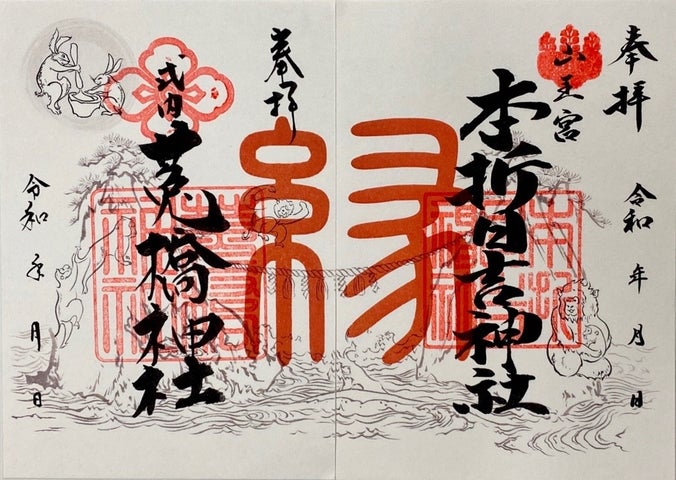 奉拝
山王宮
本折日吉神社
令和 年 月 日
縁
奉拝
式内
莵橋神社
令和 年 月 日